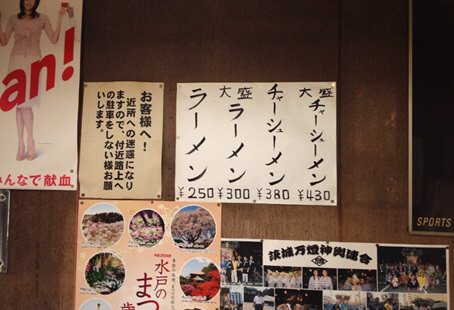 an!
んなで献血
お客様へ!
近所への迷惑になり
ますので、付近路上へ
の駐車をしない様お願
いします。
ラーメン
¥250
大盛ラーメン
¥300
チャーシューメン
¥380
大盛チャーシューメン
¥430
SPORTS
水戸の
まつ
茨城万燈神輿連合